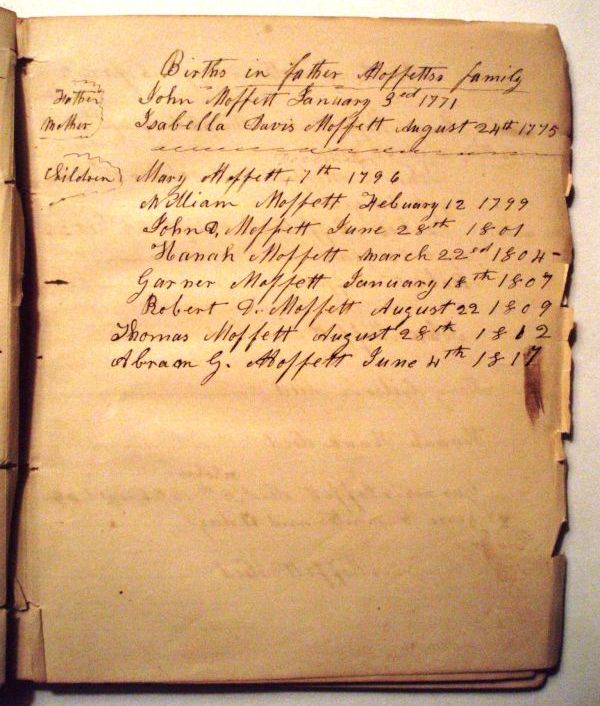 Births in father Moffetts family
Father John Moffett January 3ed 1771
Mother Isabella Davis Moffett August 24th 1775
Children Mary Moffett 7th 1796
William Moffett Febuary 12 1799
John D. Moffett June 28th 1801
Hanah Moffett march 22ed 1804
Garner Moffett January 18th 1807
Robert D. Moffett August 22 1809
Thomas Moffett August 28th 1812
Abram G. Moffett June 4th 1817